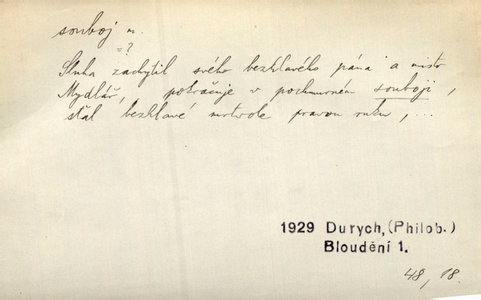 souboj m.
= ?
Sluha zachytil svého bezhlavého pána a mistr
Mydlář, pokračuje v pochmurném souboji,
sťal bezhlavé mrtvole pravou ruku, ...
1929 Durych, (Philob.)
Bloudění 1.
48, 18.